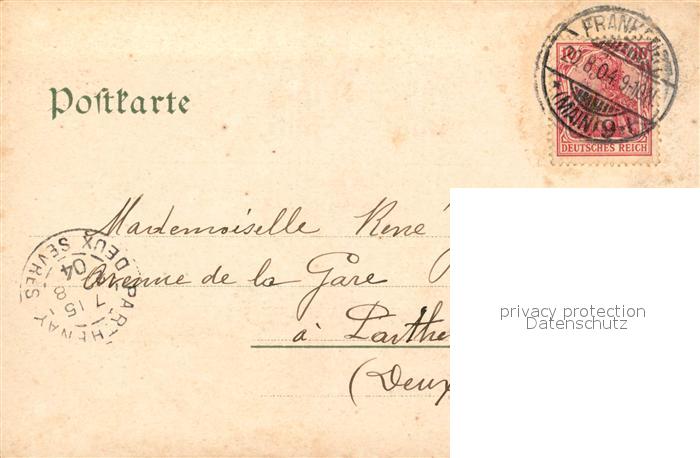 Postkarte
FRANKFURT
20.8.04.9-10V.
* (MAIN) 9
DEUTSCHES REICH
Mademoiselle René
Avenue de la Gare
à Parthe
(Deux
PARTHENAY
DEUX SÈVRES
7 15
8
04
privacy protection
Datenschutz